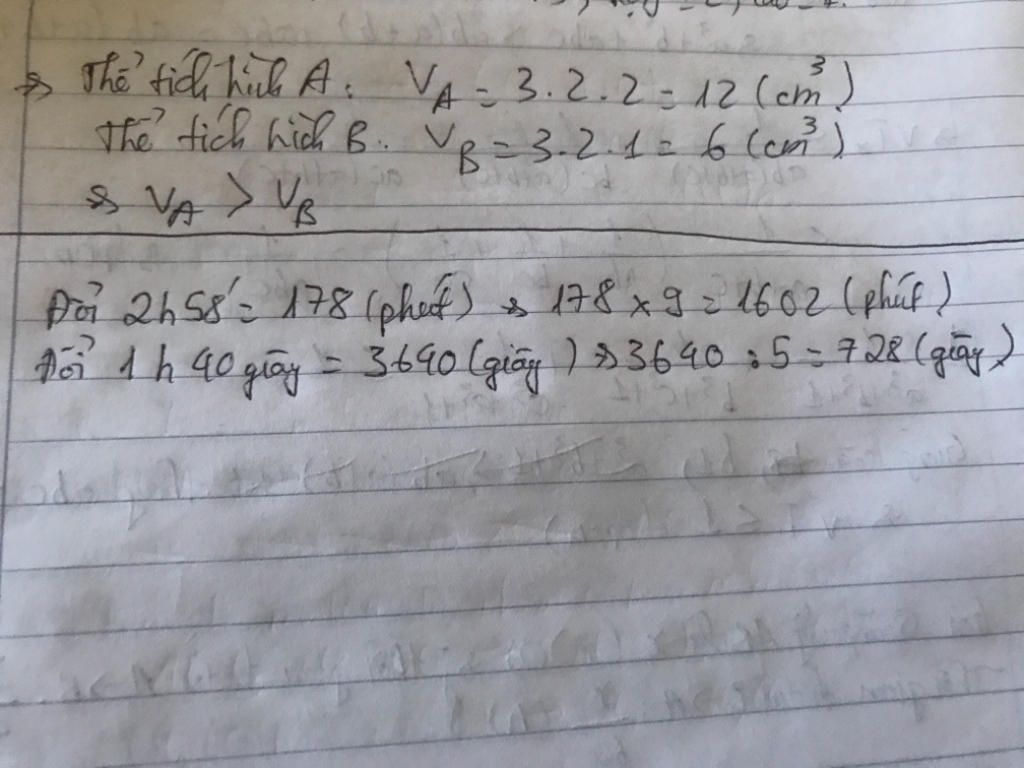 => Thể tích hình A: V_A = 3.2.2 = 12 (cm³)
Thể tích hình B. V_B = 3.2.1 = 6 (cm³)
=> V_A > V_B
Đổi 2h58' = 178 (phút) => 178 x 9 = 1602 (phút)
Đổi 1h 40 giây = 3640 (giây) => 3640 : 5 = 728 (giây)